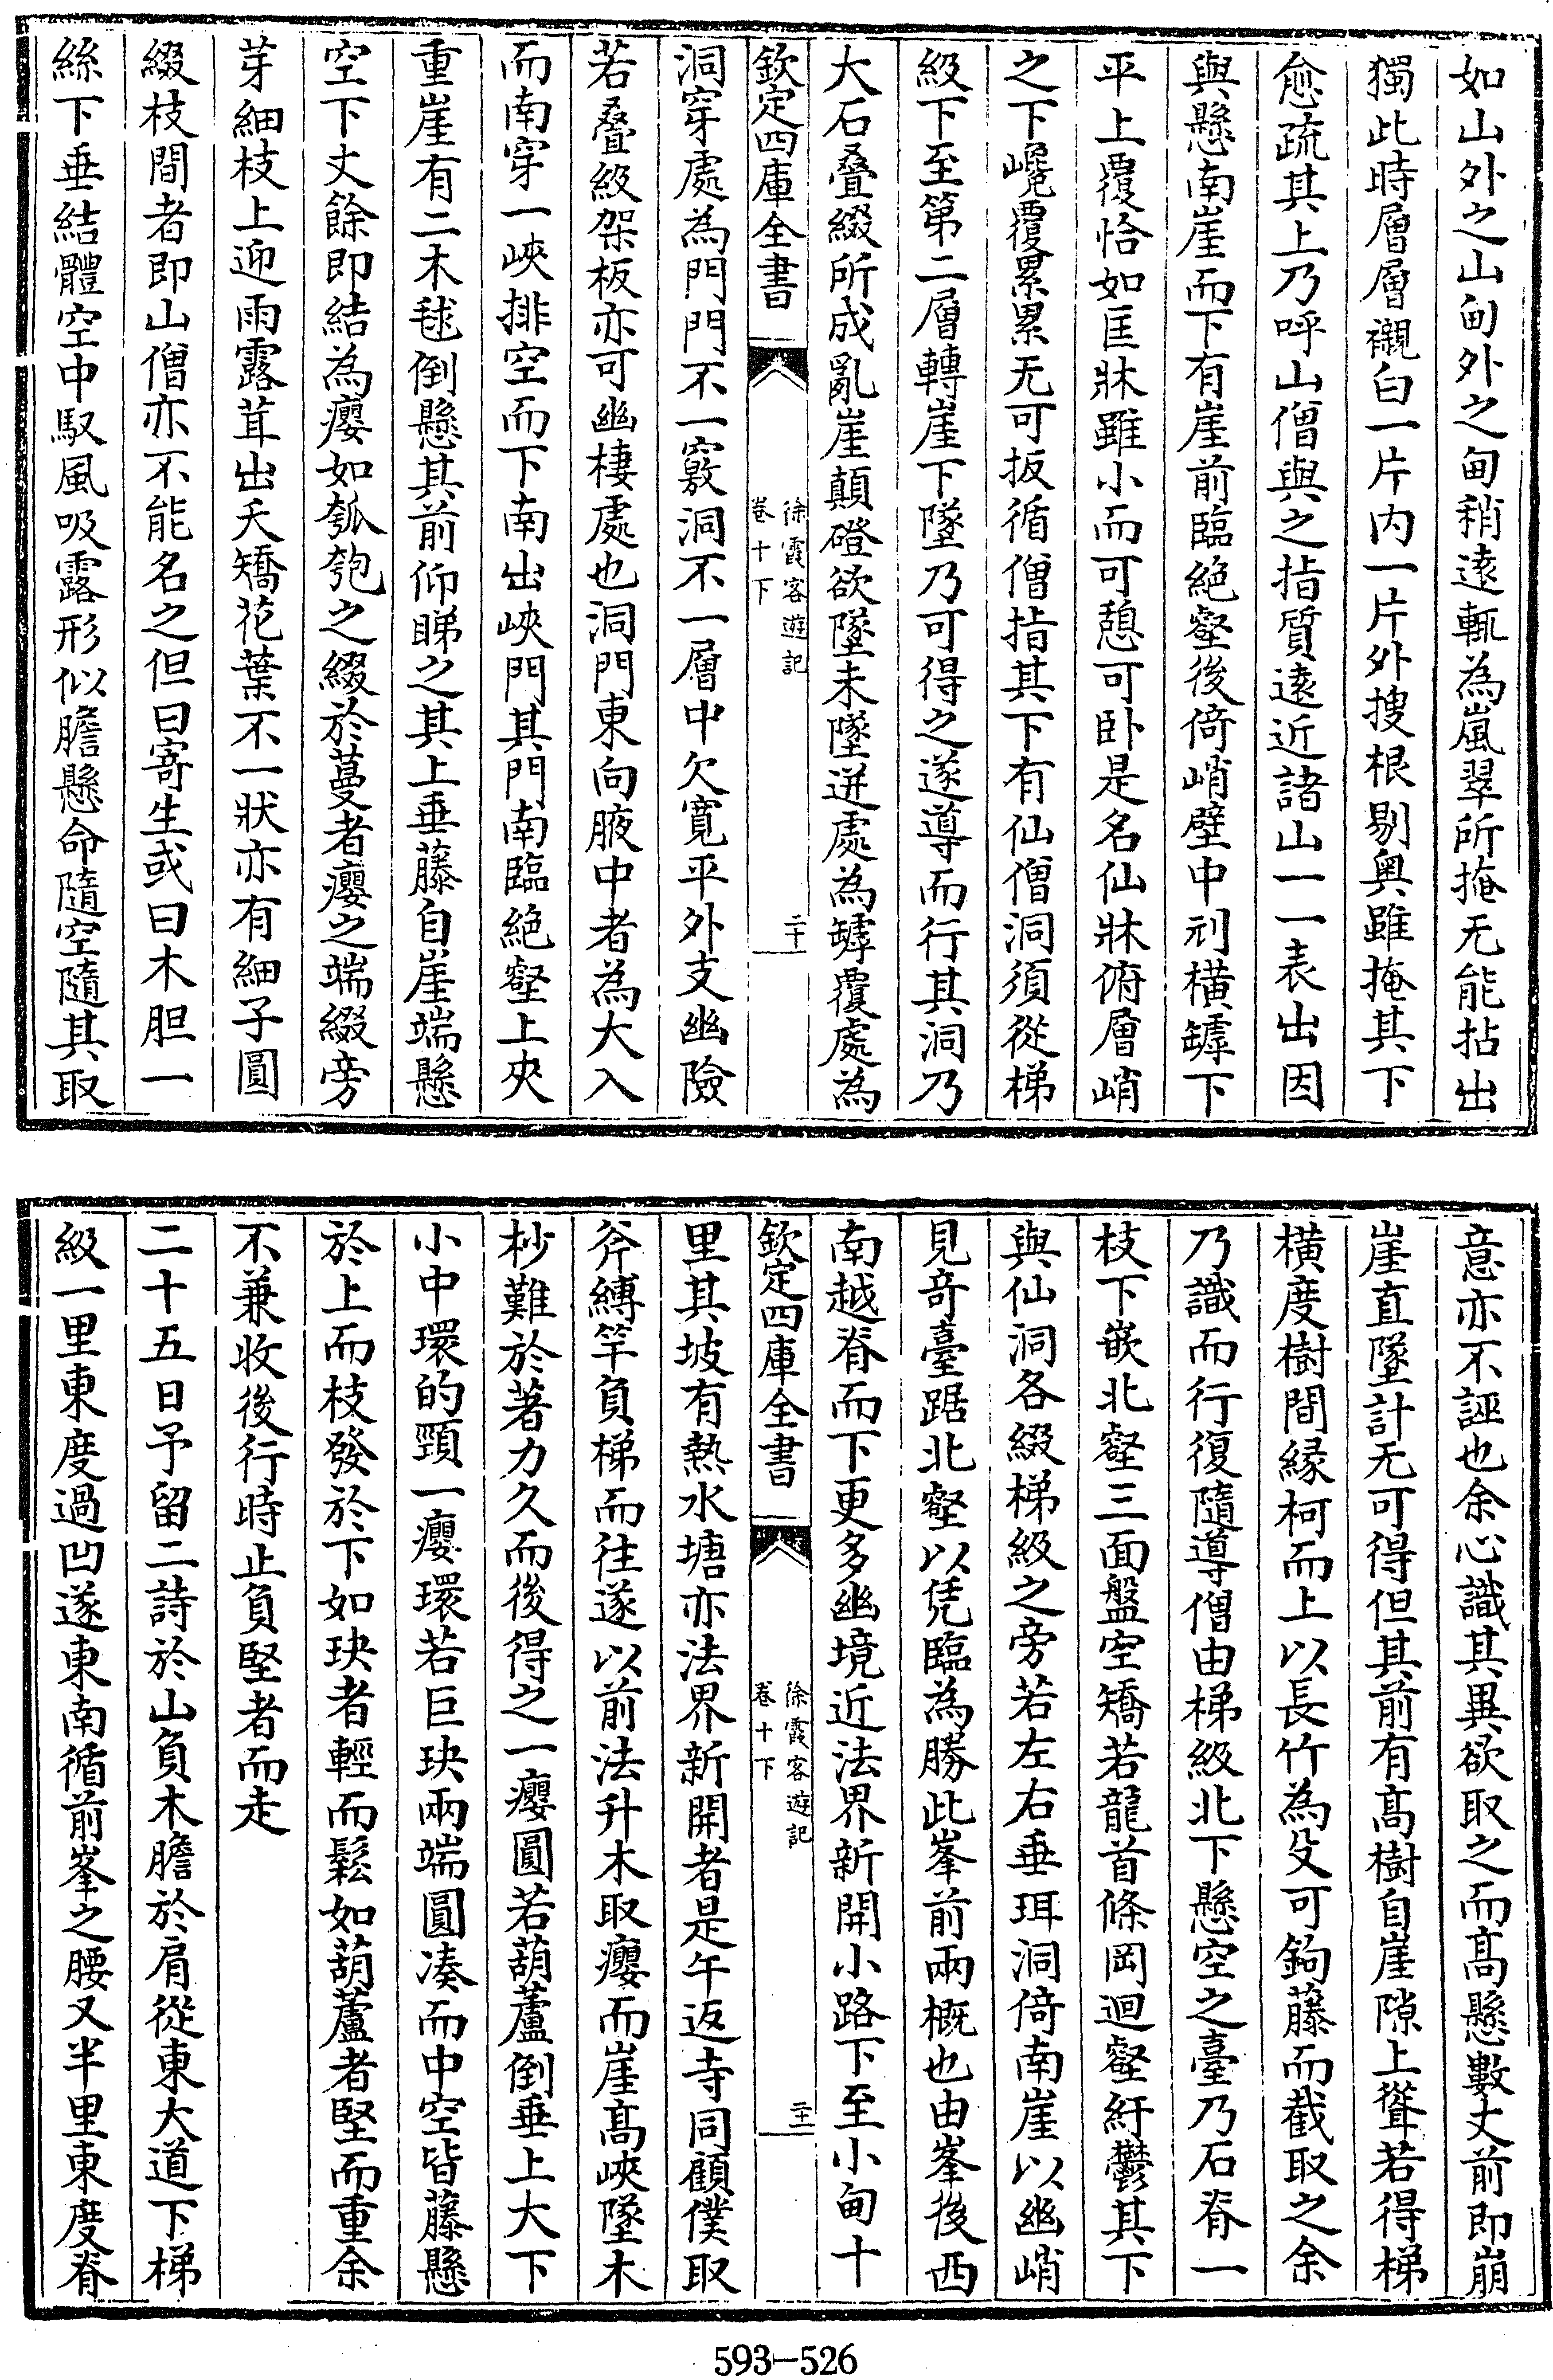 如山外之山甸外之甸稍逺輒為嵐翠所掩无能拈出
獨此時層層襯白一片内一片外搜根剔奥雖掩其下
愈疏其上乃呼山僧與之指質逺近諸山一一表出因
與懸南崖而下有崖前臨絶壑後倚峭壁中刓橫罅下
平上覆恰如匡牀雖小而可憩可卧是名仙牀俯層峭
之下巉覆累累无可扳循僧指其下有仙僧洞須從梯
級下至第二層轉崖下墜乃可得之遂導而行其洞乃
大石叠綴所成亂崖顛磴欲墜未墜迸處為罅覆處為
欽定四庫全書
徐霞客遊記
卷十下
二十
洞穿處為門門不一竅洞不一層中欠寛平外支幽險
若叠級架板亦可幽棲處也洞門東向腋中者為大入
而南穿一峽排空而下南出峽門其門南臨絶壑上夾
重崖有二木毬倒懸其前仰睇之其上垂藤自崖端懸
空下丈餘即結為癭如瓠匏之綴於蔓者癭之端綴旁
芽細枝上迎雨露茸出夭矯花葉不一狀亦有細子圓
綴枝間者即山僧亦不能名之但曰寄生或曰木胆一
絲下垂結體空中馭風吸露形似膽懸命隨空隨其取
意亦不誣也余心識其異欲取之而髙懸數丈前即崩
崖直墜計无可得但其前有髙樹自崖隙上聳若得梯
橫度樹間縁柯而上以長竹為殳可鉤藤而截取之余
乃識而行復隨導僧由梯級北下懸空之臺乃石脊一
枝下嵌北壑三面盤空矯若龍首條岡迴壑紆鬱其下
與仙洞各綴梯級之旁若左右垂珥洞倚南崖以幽峭
見奇臺踞北壑以凭臨為勝此峯前兩概也由峯後西
南越脊而下更多幽境近法界新開小路下至小甸十
欽定四庫全書
徐霞客遊記
卷十下
二十一
里其坡有熱水塘亦法界新開者是午返寺同顧僕取
斧縛竿負梯而往遂以前法升木取癭而崖髙峽墜木
杪難於著力久而後得之一癭圓若葫蘆倒垂上大下
小中環的頸一癭環若巨玦兩端圓凑而中空皆藤懸
於上而枝發於下如玦者輕而鬆如葫蘆者堅而重余
不兼收後行時止負堅者而走
二十五日予留二詩於山負木膽於肩從東大道下梯
級一里東度過凹遂東南循前峯之腰又半里東度脊
593-526